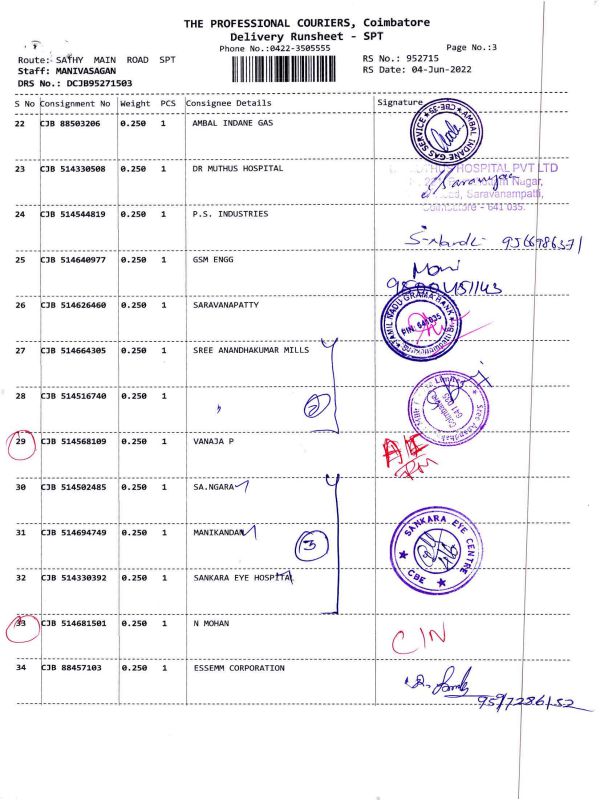 THE PROFESSIONAL COURIERS, Coimbatore
Delivery Runsheet - SPT
Phone No.:0422-3505555
Page No.:3
Route: SATHY MAIN ROAD SPT
RS No.: 952715
Staff: MANIVASAGAN
RS Date: 04-Jun-2022
DRS No.: DCJB95271503
S No Consignment No Weight PCS Consignee Details Signature
22 CJB 88503206 0.250 1 AMBAL INDANE GAS
AMBAL INDANE GAS SERVICE ★ CBE-35
23 CJB 514330508 0.250 1 DR MUTHUS HOSPITAL
HOSPITAL PVT LTD
Nagar,
Saravanampatti,
Coimbatore - 641 035.
24 CJB 514544819 0.250 1 P.S. INDUSTRIES
25 CJB 514640977 0.250 1 GSM ENGG
Mani
26 CJB 514626460 0.250 1 SARAVANAPATTY
TAMIL NADU GRAMA BANK
PIN 641035
27 CJB 514664305 0.250 1 SREE ANANDHAKUMAR MILLS
28 CJB 514516740 0.250 1 "
2
Limited
Coimbatore
641 035
29 CJB 514568109 0.250 1 VANAJA P
30 CJB 514502485 0.250 1 SA.NGARA
31 CJB 514694749 0.250 1 MANIKANDAN
3
SANKARA EYE CENTRE
★ CBE ★
32 CJB 514330392 0.250 1 SANKARA EYE HOSPITAL
33 CJB 514681501 0.250 1 N MOHAN
C/N
34 CJB 88457103 0.250 1 ESSEMM CORPORATION
9597286152